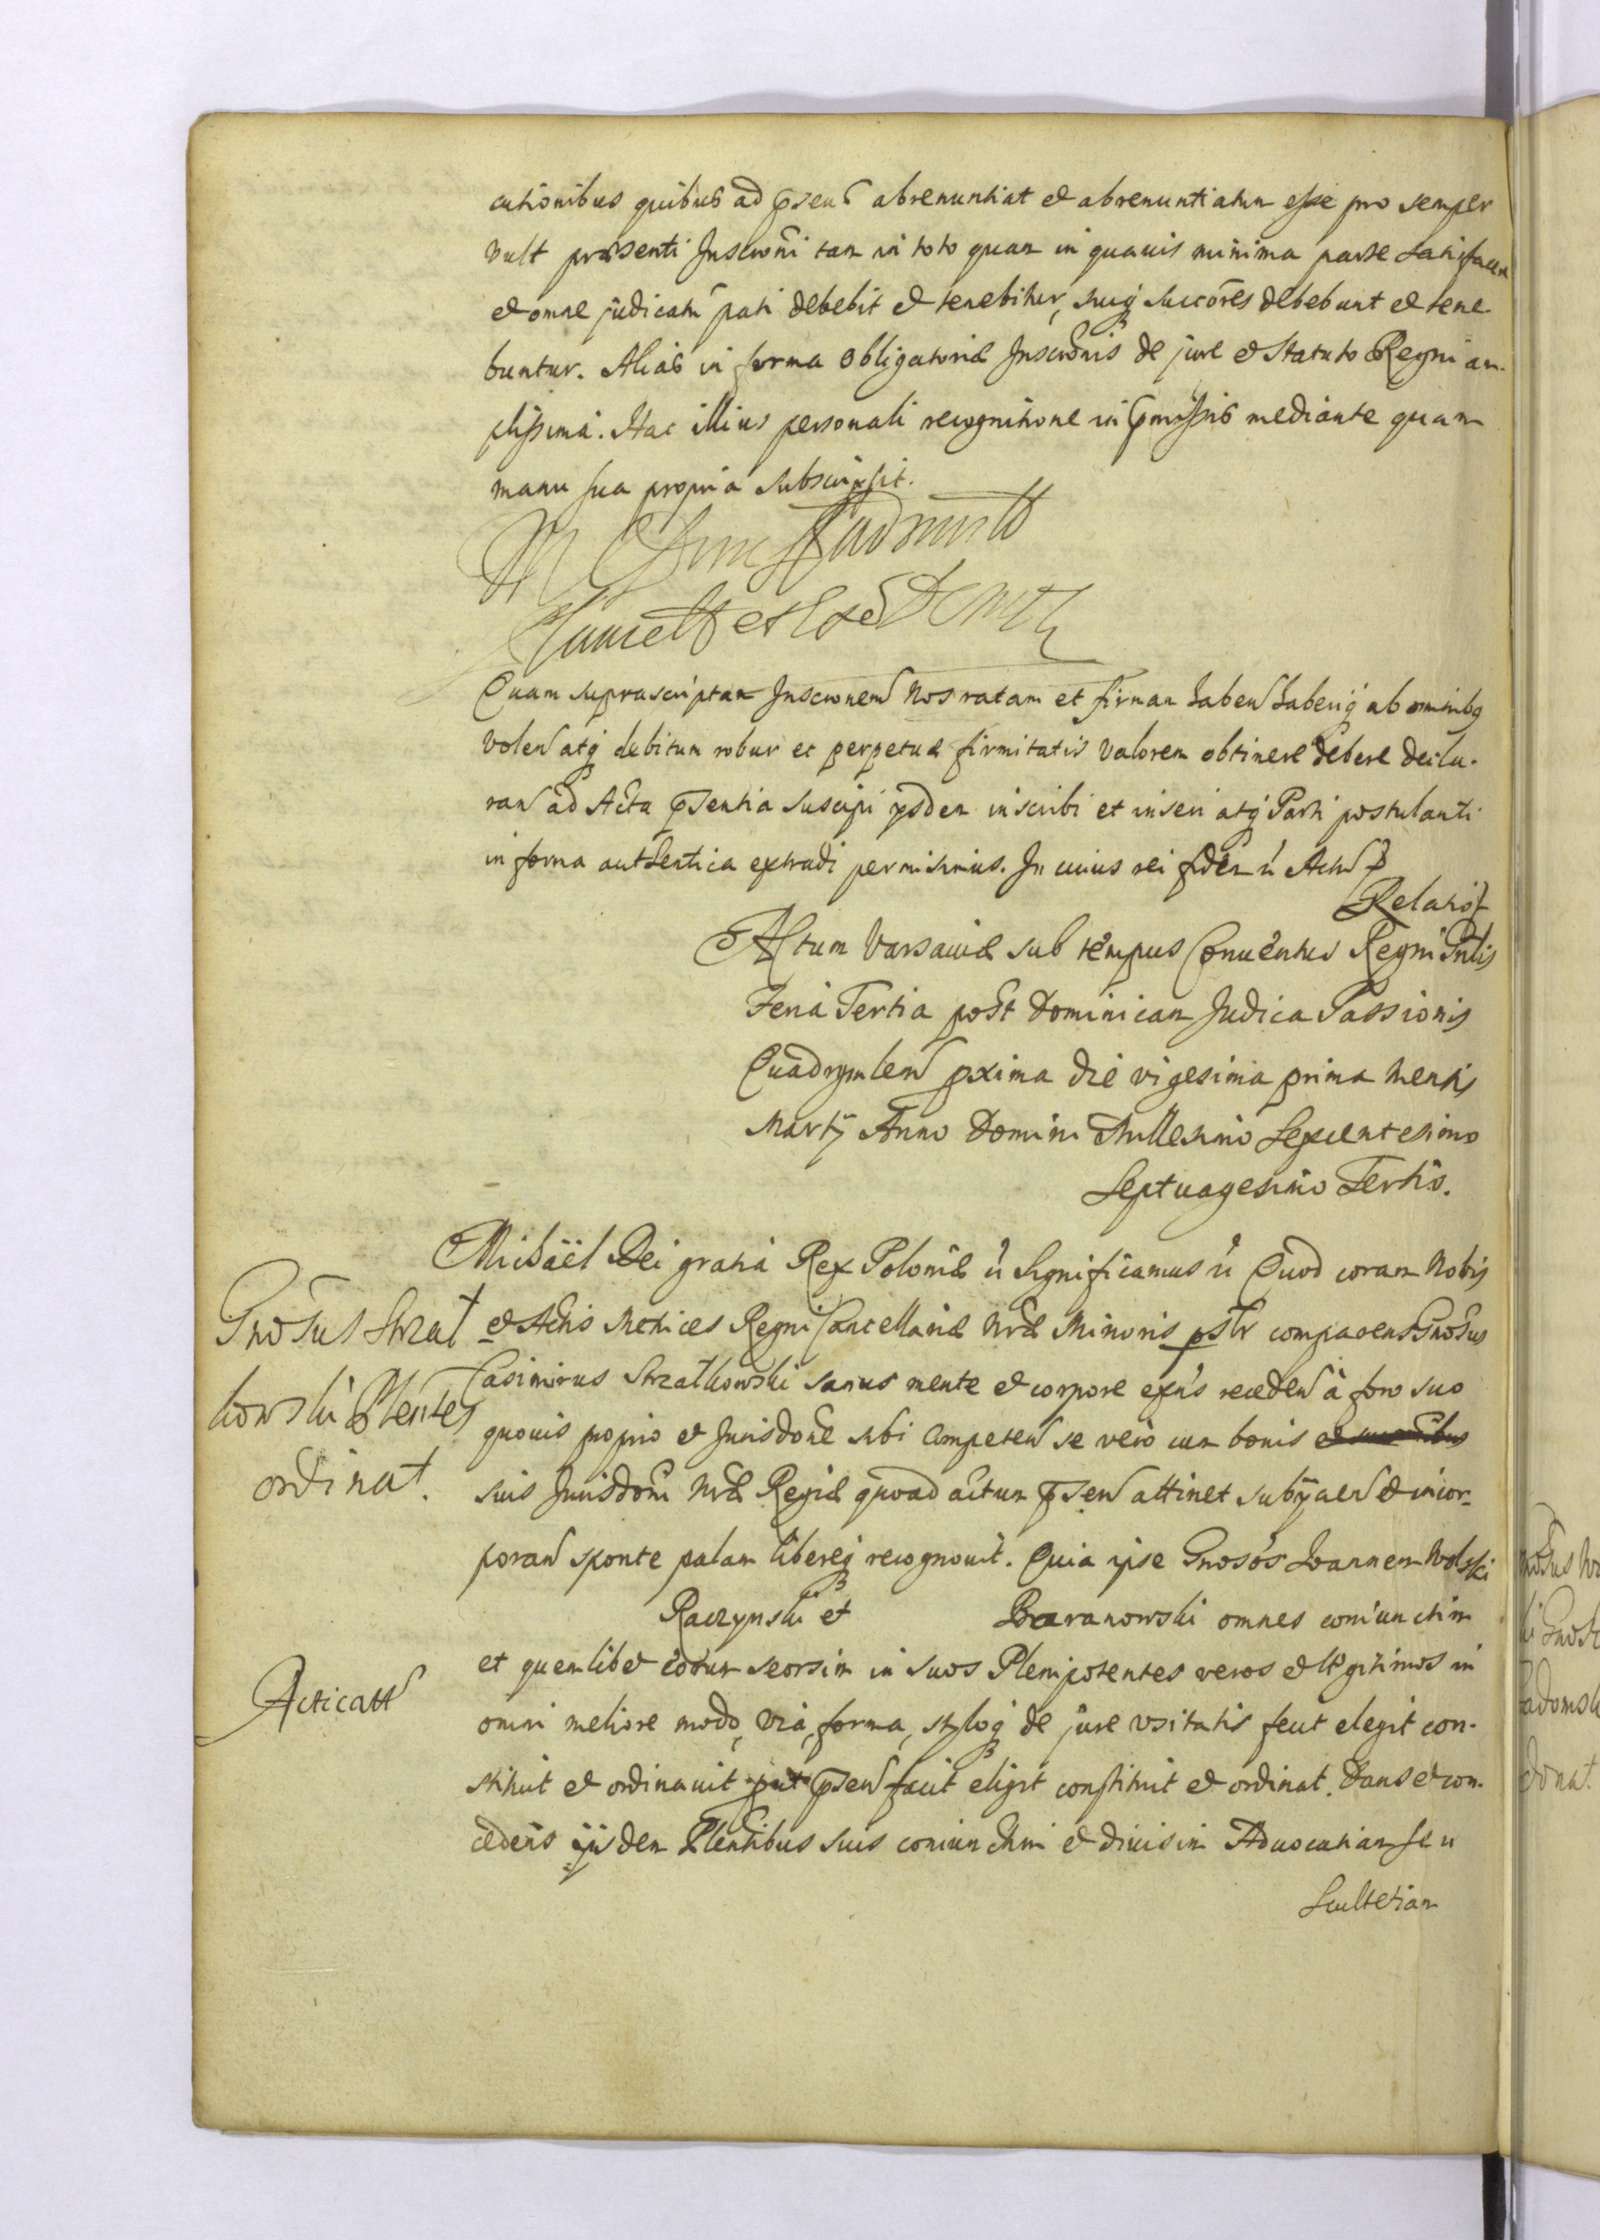 cutionibus quibus ad psens abrenuntiat et abrenuntiatum esse pro semper
vult præsenti Inscrōni tam in toto quam in quavis minima parte satisfacere
et omne judicatū pati debebit et tenebitur, suiq; succōres debebunt et tene-
buntur. Alias in forma obligatoriæ Inscrōnis de jure et Statuto Regni am-
plissima. Hac illius personali recognitione in pmissis mediante quam
manu sua propria subscripsit.
Quam suprascriptam Inscrionem Nos ratam et firmam haben haberiq; ab omnibq
volen atq; debitum robur et perpetuæ firmitatis valorem obtinere debere decla-
ran ad Acta psentia suscipi ysdem inscribi et inseri atq; Parti postulanti
in forma authentica extradi permisimus. In cuius rei fidem ꝛc Actū
Relatio
Actum Varsaviæ sub tempus Conventus Regni Gnlis
Feria Tertia post Dominicam Judica Passionis
Quadrgmlem pxima die vigesima prima Mensis
Martÿ Anno Domini Millesimo Sexcentesimo
Septuagesimo Tertio.
Michaël Dei gratia Rex Poloniæ ꝛc Significamus ꝛc Quod coram Nobis
et Actis Metrices Regni Cancellariæ Nræ Minoris pslr comparens Gnosus
Casimirus Strzałkowski sanus mente et corpore exn̄s receden à foro suo
quovis proprio et Jurisdōne sibi competen se verò cum bonis
suis Jurisdōni Nræ Regiæ quoad actum psen attinet subÿcien et incor-
poran sponte palam libereq; recognovit. Quia ipse Gnosos Joannem Wolski
Raczynski et Baranowski omnes coniunctim
et quemlibet eorum seorsim in suos Plenipotentes veros et legitimos in
omni meliore modo, via, forma, styloq; de jure usitatis fecit elegit con-
stituit et ordinavit put psen facit eligit constituit et ordinat. Dans et con-
cedens ijsdem Plentibus suis coniunctim et divisim Advocatiam seu
Scultetiam
Gnosus Strzał
kowski Plentes
ordinat.
Acticatt